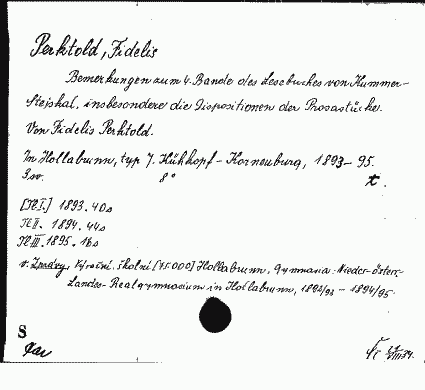 Perktold, Fidelis
Bemerkungen zum 4. Bande des Lesebuches von Kummer-
Stejskal, insbesondere die Dispositionen der Prosastücke.
Von Fidelis Perktold.
In Hollabrunn, typ J. Kühkopf - Korneuburg, 1893-95.
3 sv. 8° t.
[Tl I.] 1893. 40s
Tl II. 1894. 44s
Tl III. 1895. 16s
v. Zprávy, Výroční, školní [45.000] Hollabrunn, Gymnasia: Nieder-österr.
Landes-Realgymnasium in Hollabrunn, 1892/93 - 1894/95.
S